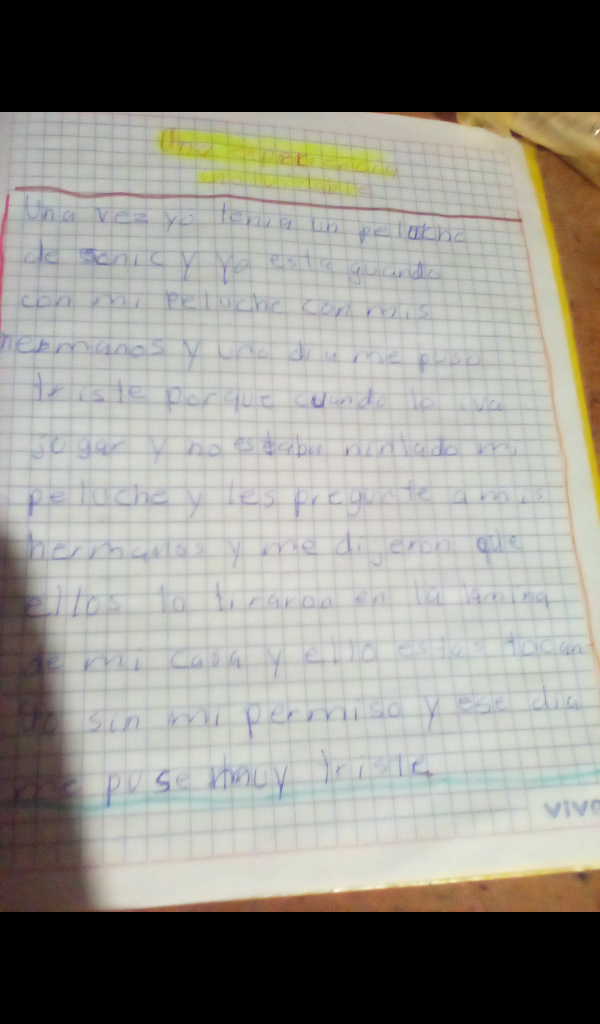 Una experiencia
inolvidable
Una vez yo tenia un peluche
de sonic y yo esta guando
con mi peluche con mis
hermanos y una dia me puse
triste porque cuando lo iva
jugar y no estaba ninlado mi
peluche y les pregunte a mis
hermanos y me dijeron que
ellos lo tiraron en la lamina
de mi casa y ello estas tocan
do sin mi permiso y ese dia
me puse muy triste.
vivo